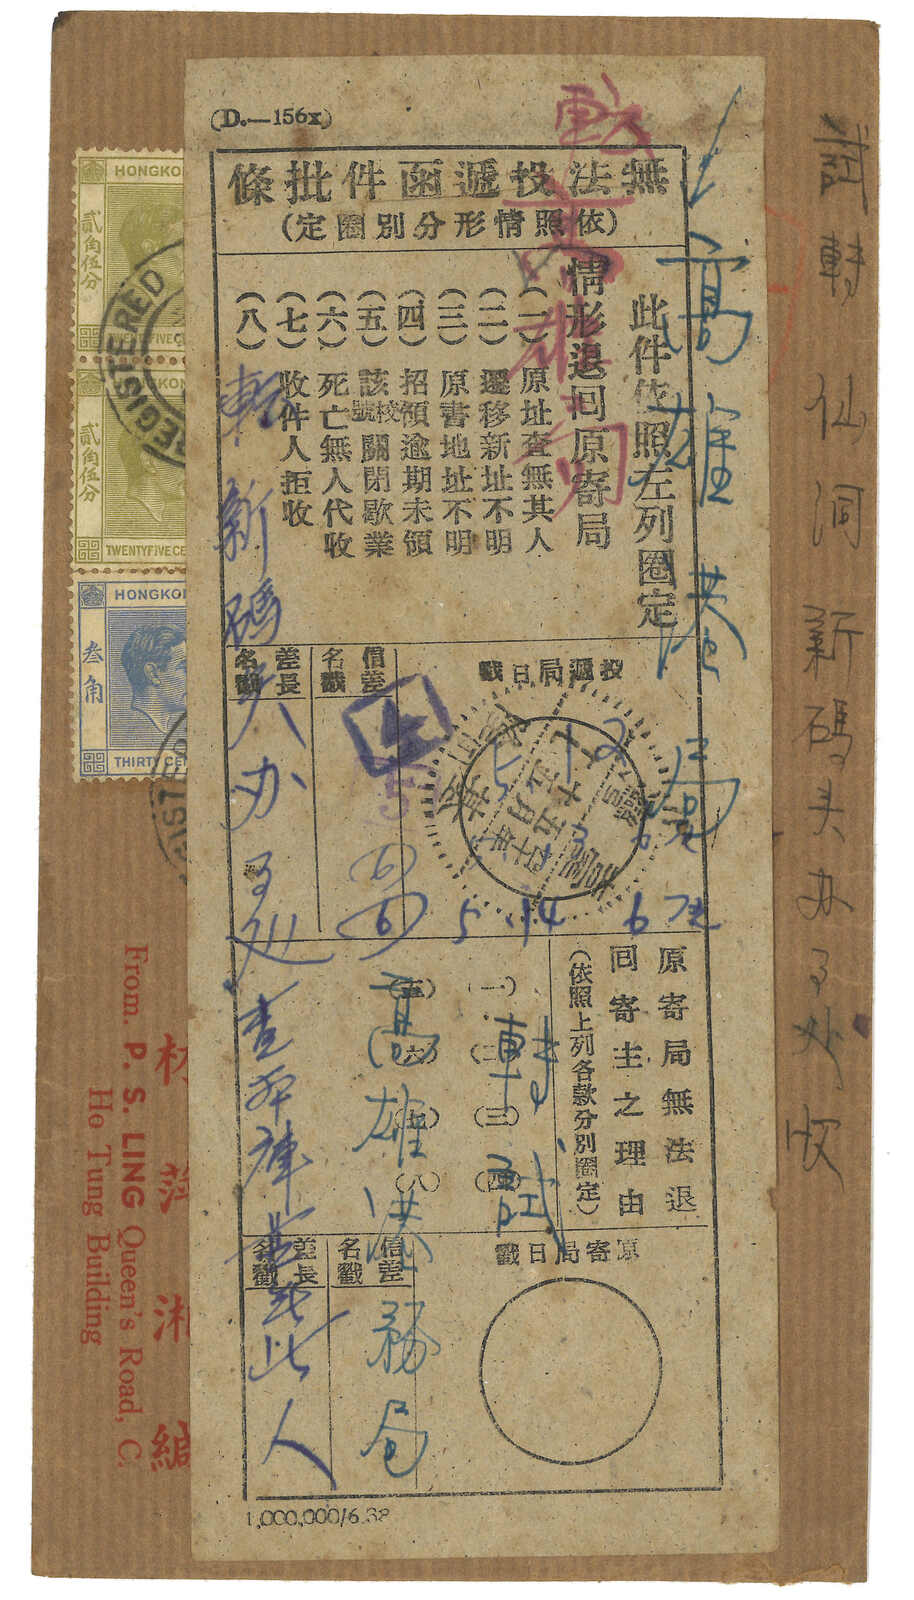 (D.—156x)
無法投遞函件批條
(依照情形分別圈定)
此件依照左列圈定
情形退回原寄局
(一)原址查無其人
(二)遷移新址不明
(三)原書地址不明
(四)招領逾期未領
(五)該號校關閉歇業
(六)死亡無人代收
(七)收件人拒收
(八)
投遞局日戳
信差名戳
差長名戳
原寄局無法退
回寄主之理由
(依照上列各款分別圈定)
(一)
(二)
(三)
(四)
(五)
(六)
(七)
(八)
原寄局日戳
信差名戳
差長名戳
1,000,000/6.38
試轉仙洞新碼头办了处收
高雄港局
5.12
5.14
轉試
高雄港務局
轉新碼头办了处
查本庫並無此人
HONGKO
貳角伍分
FIVECE
HONGKO
貳角伍分
TWENTYFIVECE
HONGKO
叁角
THIRTY CEN
REGISTERED
From. P. S. LING Queen's Road, C.
Ho Tung Building
林萍湘緘